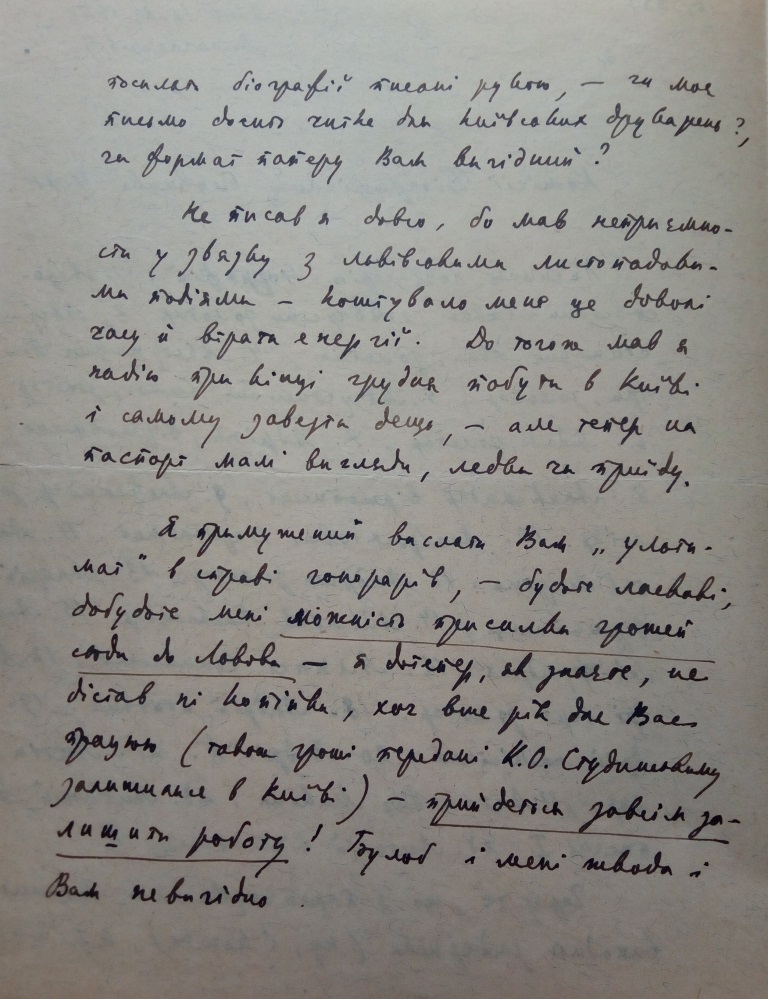 посилати біографії писані рукою, — чи моє
письмо досить читке для київських друкарень?,
чи формат паперу Вам вигідний?
Не писав я довго, бо мав неприємно-
сти у звязку з львівськими листопадови-
ми подіями — коштувало мене це доволі
часу й втрати енергії. До того ж мав я
надію при кінці грудня побути в Київі
і самому завезти дещо, — але тепер на
паспорт малі вигляди, ледви чи приїду.
Я примушений вислати Вам „ульти-
мат" в справі гонорарів, — будьте ласкаві,
добудьте мені можність присилки грошей
сюди до Львова — я дотепер, як знаєте, не
дістав ні копійки, хоч вже рік для Вас
працюю (також гроші передані К.О. Студинському
залишилися в Київі) — прийдеться зовсім за-
лишити роботу! Було б і мені шкода і
Вам невигідно.